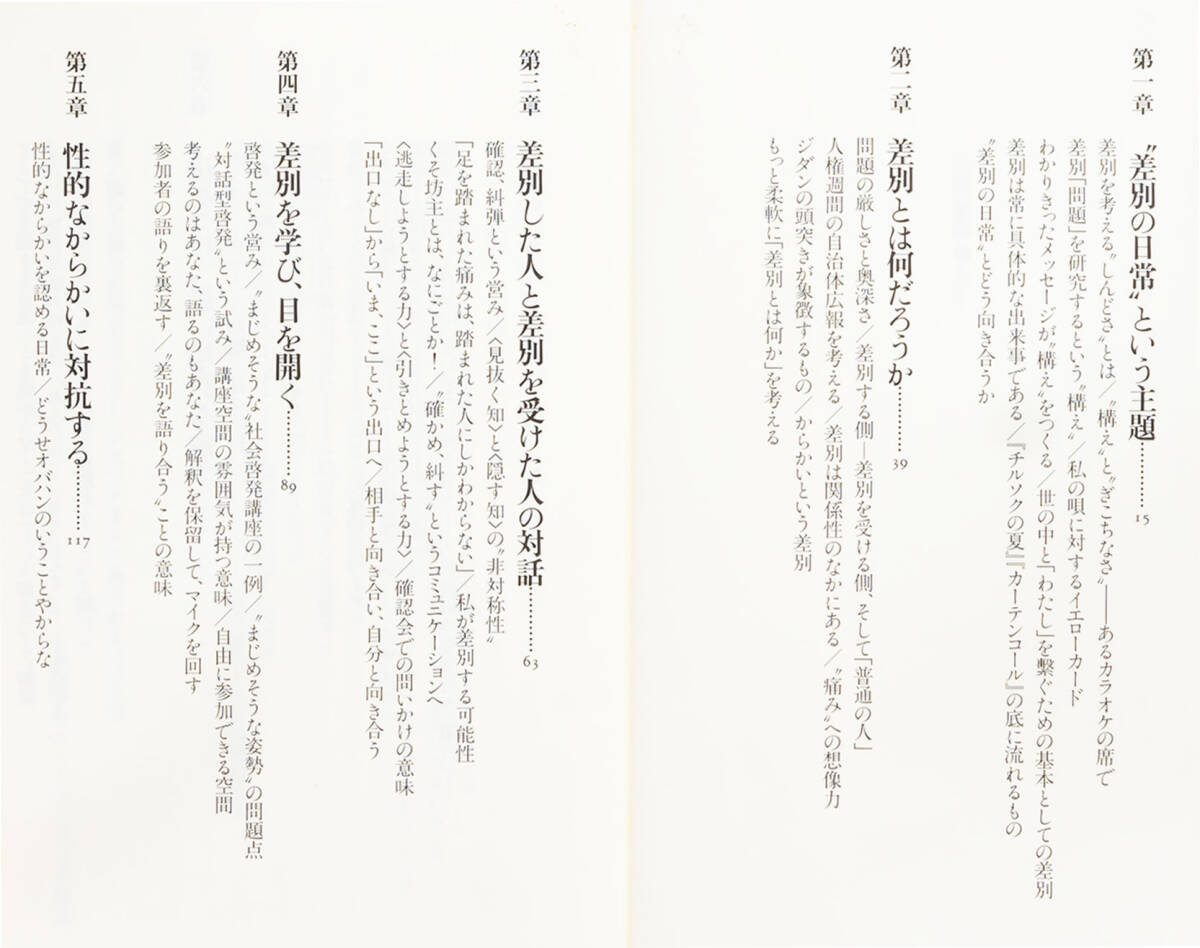 第一章 〝差別の日常〟という主題…………15
差別を考える〝しんどさ〟とは／〝構え〟と〝ぎこちなさ〟――あるカラオケの席で
差別「問題」を研究するという〝構え〟／私の唄に対するイエローカード
わかりきったメッセージが〝構え〟をつくる／世の中と「わたし」を繋ぐための基本としての差別
差別は常に具体的な出来事である／『チルソクの夏』『カーテンコール』の底に流れるもの
〝差別の日常〟とどう向き合うか
第二章 差別とは何だろうか…………39
問題の厳しさと奥深さ／差別する側―差別を受ける側、そして「普通の人」
人権週間の自治体広報を考える／差別は関係性のなかにある／〝痛み〟への想像力
ジダンの頭突きが象徴するもの／からかいという差別
もっと柔軟に「差別とは何か」を考える
第三章 差別した人と差別を受けた人の対話…………63
確認、糾弾という営み／〈見抜く知〉と〈隠す知〉の〝非対称性〟
「足を踏まれた痛みは、踏まれた人にしかわからない」／私が差別する可能性
くそ坊主とは、なにごとか！／〝確かめ、糾す〟というコミュニケーションへ
〈逃走しようとする力〉と〈引きとめようとする力〉／確認会での問いかけの意味
「出口なし」から「いま、ここ」という出口へ／相手と向き合い、自分と向き合う
第四章 差別を学び、目を開く…………89
啓発という営み／〝まじめそうな〟社会啓発講座の一例／〝まじめそうな姿勢〟の問題点
〝対話型啓発〟という試み／講座空間の雰囲気が持つ意味／自由に参加できる空間
考えるのはあなた、語るのもあなた／解釈を保留して、マイクを回す
参加者の語りを裏返す／〝差別を語り合う〟ことの意味
第五章 性的なからかいに対抗する…………117
性的なからかいを認める日常／どうせオバハンのいうことやからな